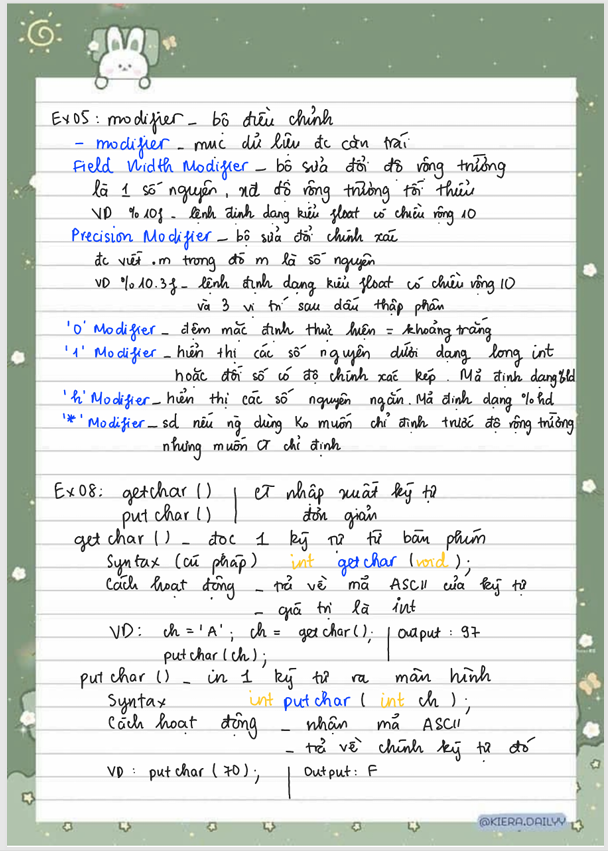 Ex05: modifier - bộ điều chỉnh
- modifier - mục dữ liệu đc căn trái
Field Width Modifier - bộ sửa đổi độ rộng trường
là 1 số nguyên, xđ độ rộng trường tối thiểu
VD %10f - lệnh định dạng kiểu float có chiều rộng 10
Precision Modifier - bộ sửa đổi chính xác
đc viết .m trong đó m là số nguyên
VD %10.3f - lệnh định dạng kiểu float có chiều rộng 10
và 3 vị trí sau dấu thập phân
'0' Modifier - đệm mặc định thực hiện = khoảng trắng
'l' Modifier - hiển thị các số nguyên dưới dạng long int
hoặc đối số có độ chính xác kép. Mã định dạng %ld
'h' Modifier - hiển thị các số nguyên ngắn. Mã định dạng %hd
'*' Modifier - sd nếu ng dùng ko muốn chỉ định trước độ rộng trường
nhưng muốn CT chỉ định
Ex08: getchar () | CT nhập xuất ký tự
putchar () | đơn giản
getchar () - đọc 1 ký tự từ bàn phím
Syntax (cú pháp) int getchar (void);
Cách hoạt động - trả về mã ASCII của ký tự
- giá trị là int
VD: ch = 'A'; ch = getchar(); | Output: 97
putchar (ch);
putchar () - in 1 ký tự ra màn hình
Syntax int putchar ( int ch );
Cách hoạt động - nhận mã ASCII
- trả về chính ký tự đó
VD: putchar (70); | Output: F
@KIERA.DAILYY